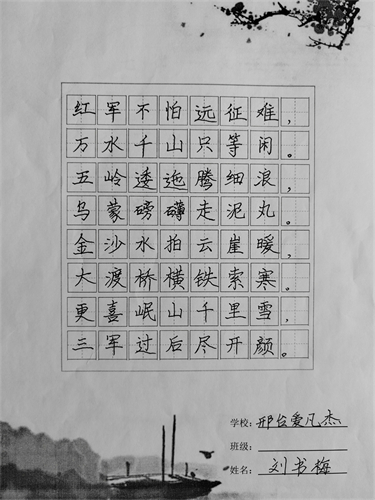 红军不怕远征难,
万水千山只等闲。
五岭逶迤腾细浪,
乌蒙磅礴走泥丸。
金沙水拍云崖暖,
大渡桥横铁索寒。
更喜岷山千里雪,
三军过后尽开颜。
学校:邢台爱凡杰
班级:
姓名:刘书梅